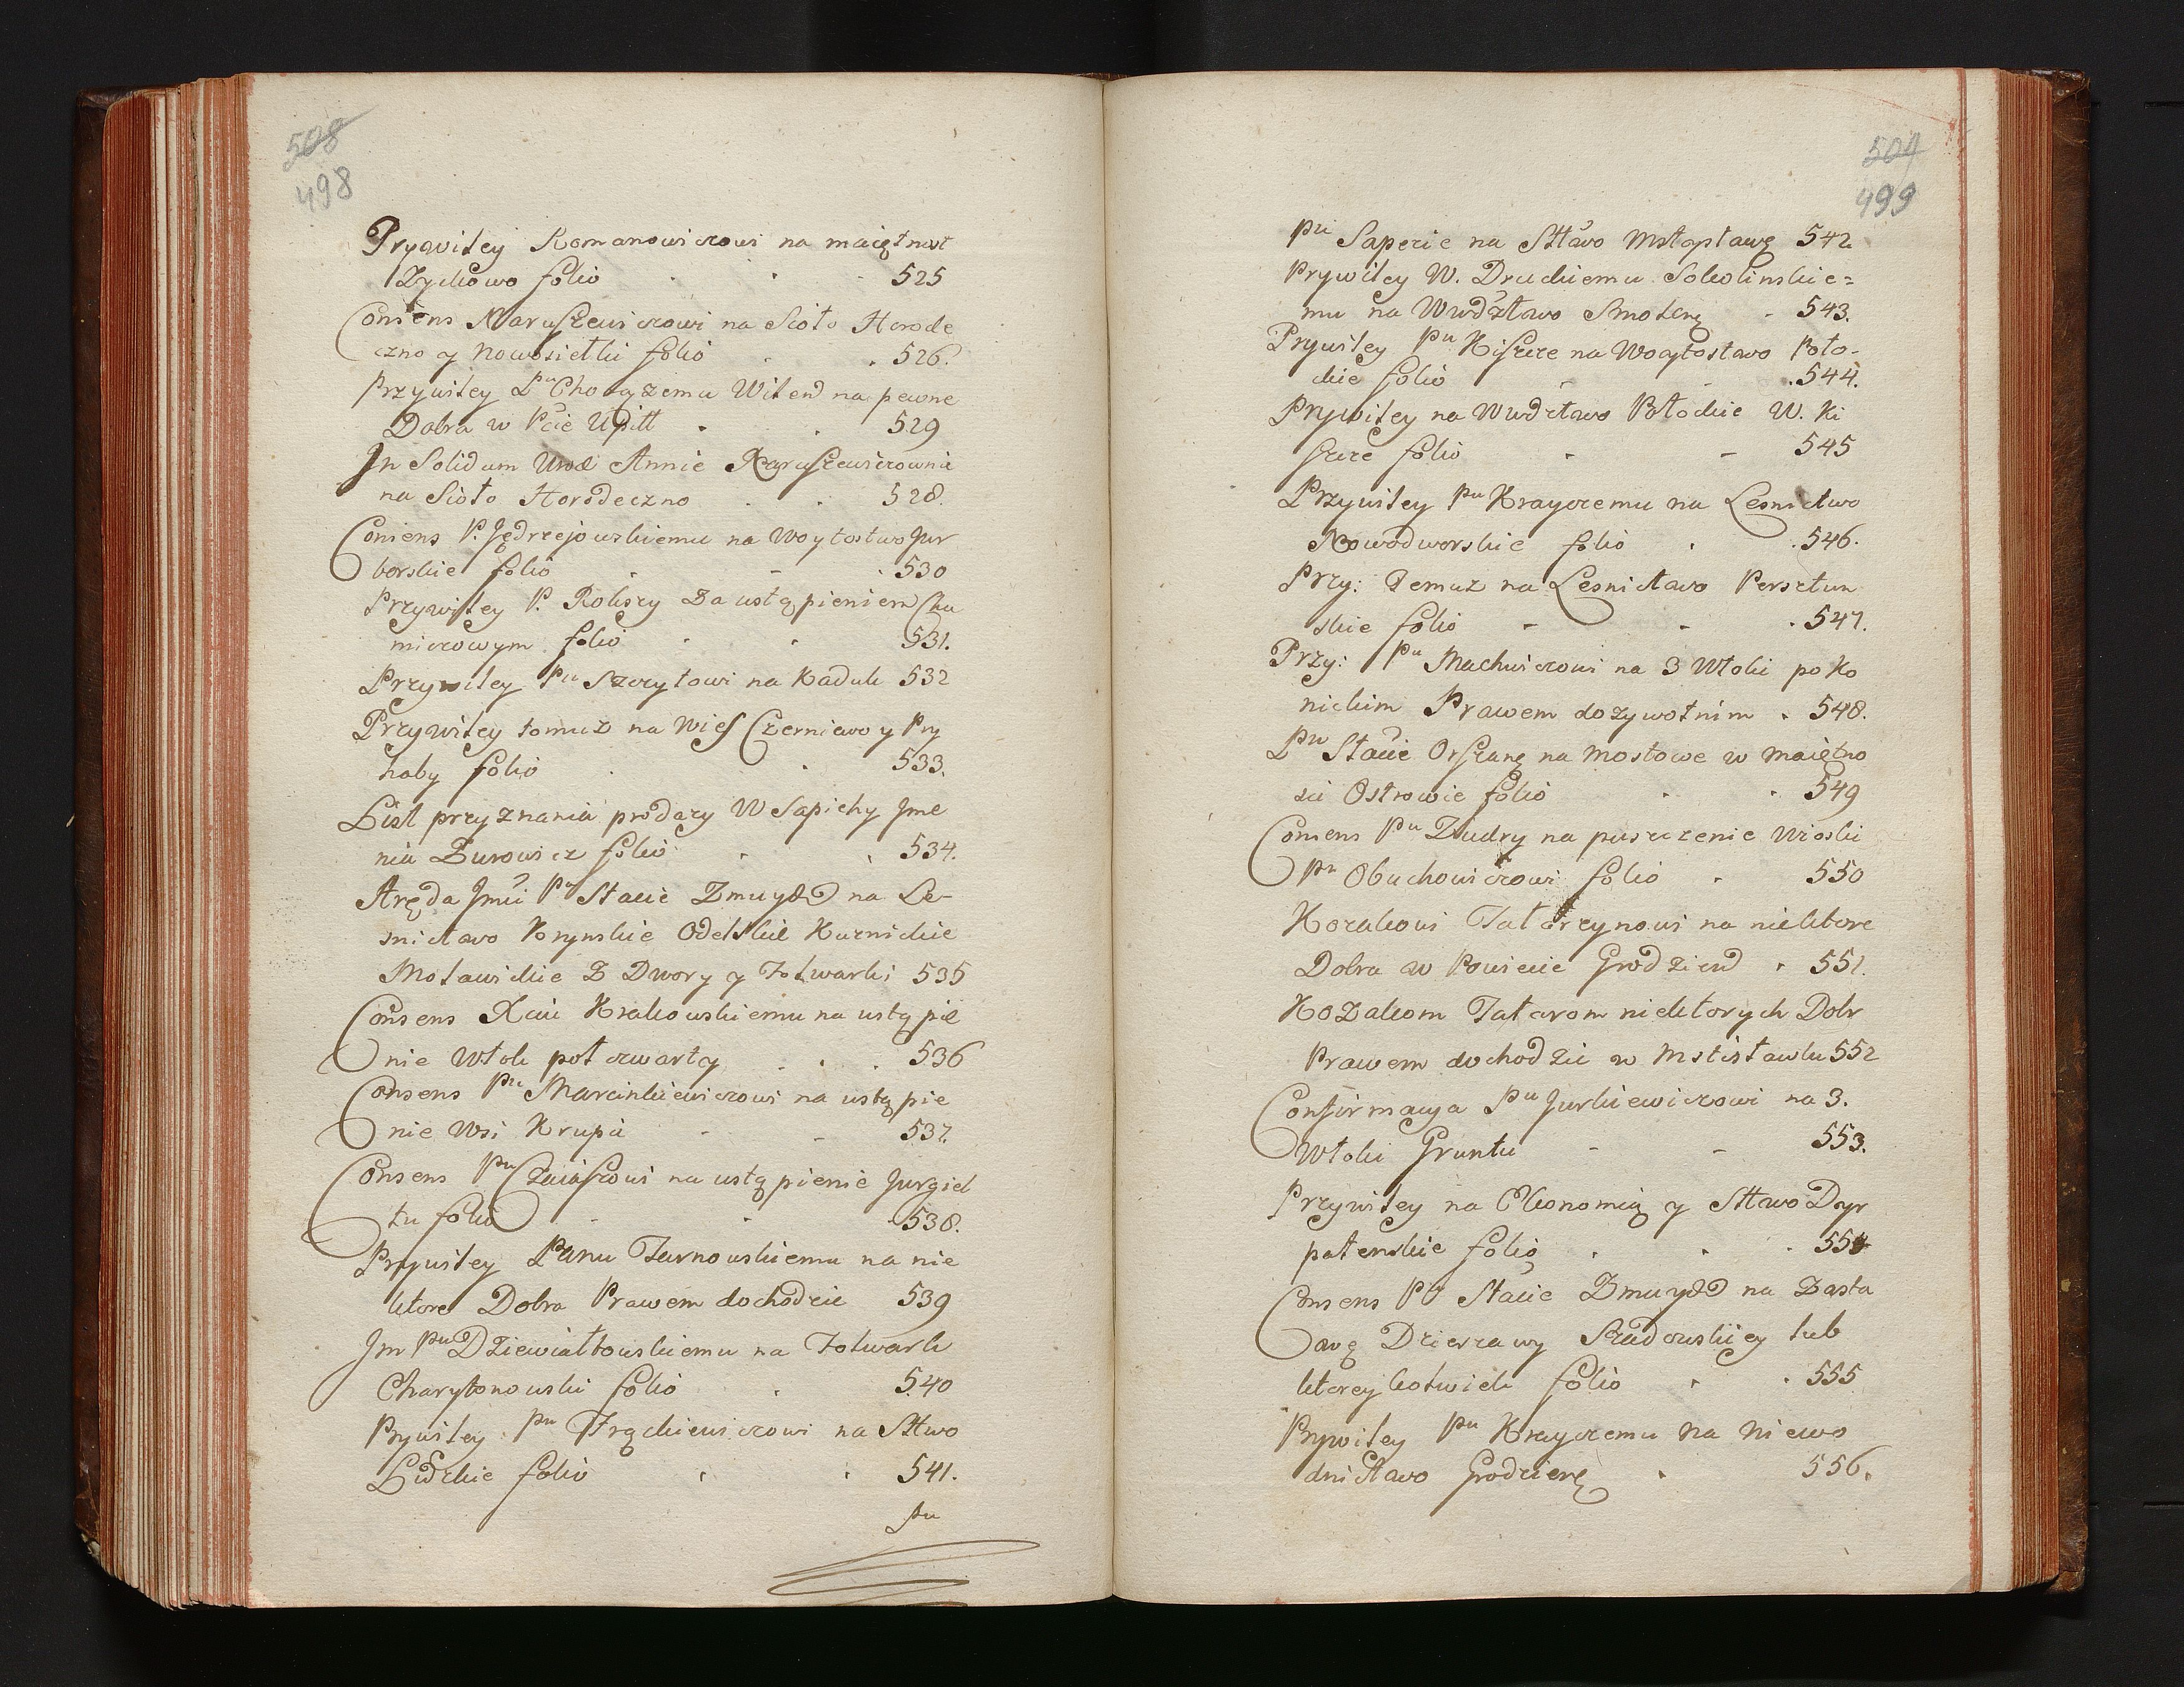 508
498
Prywiley Romanowiczowi na maiętnosć
Zyckowo folio 525
Consens Naruszewiczowi na Sioło Horode
czno y Nowosiełki folio 526.
Przywiley Pu Chorążemu Witeb na pewne
Dobra w Pcie Upitt 529
In Solidum Annie Naruszewiczownie
na Sioło Horodeczno 528.
Consens P. Jędrzejowskiemu na Woytostwo Jur
borskie folio 530
Przywiley P. Rokiszy Za ustąpieniem Chu
miczowym folio 531.
Przywiley Pu Szczytowi na Kaduk 532
Przywiley tomuz na Wieś Czerniewo y Pry
haby folio 533.
List przyznania prodazy W Sapiehy Jme
nia Zurowicz folio 534.
Aręda Jmci Pu Stacie Zmuydz na Le-
snictwo Krynskie Odelskie Kuznickie
Motawickie Z Dwory y Folwarki 535
Consens Xciu Krakowskiemu na ustąpie
nie Włok poł czwarty 536
Consens Pu Marcinkiewiczowi na ustąpie
nie Wsi Krupia 537.
Consens Pu na ustąpienie Jurgiel
tu folio 538.
Prywiley Panu Tarnowskiemu na nie
ktore Dobra Prawem dochodzic 539
Jm Pu Dziewiałtowskiemu na Folwark
Charytonowski folio 540
Prywiley Pu Frąckiewiczowi na Sttwo
Lidzkie folio 541.
Pu
504
499
Pu Sapezie na Sttwo Mstysławę 542
Prywiley W. Druckiemu Sokolinskie=
mu na Wwdztwo Smolenę 543.
Prywiley Pu Kiszcze na Woytostwo Poło-
ckie folio 544.
Prywiley na Wwdztwo Połockie W. Ki
szcze folio 545
Przywiley Pu Krayczemu na Lesnictwo
Nowodworskie folio 546.
Przy: Temuz na Lesnictwo Persztun
skie folio 547.
Przy: Pu Machwiczowi na 3 Włoki po Ko
nickim Prawem dozywotnim 548.
Pu Stacie Orszanę na Mostowe w Maiętno
sci Ostrowie folio 549
Consens Pu Dudry na puszczenie Wioski
Pu Obuchowiczowi folio 550
Kozakowi Tatarzynowi na niektore
Dobra w Powiecie Grodzień 551.
Kozakom Tatarom niektorych Dobr
Prawem dochodzić w Mstisławlu 552
Confirmacya Pu Jurkiewiczowi na 3.
Włoki Gruntu 553.
Przywiley na Ekonomią y Sttwo Dyr
patenskie folio 554
Consens Pu Stacie Zmuydz na Zasta
wę Dzierzawy Szadowskiey lub
ktoreykolwiek folio 555
Prywiley Pu Krayczemu na Niewo
dnictwo Grodzienę 556.